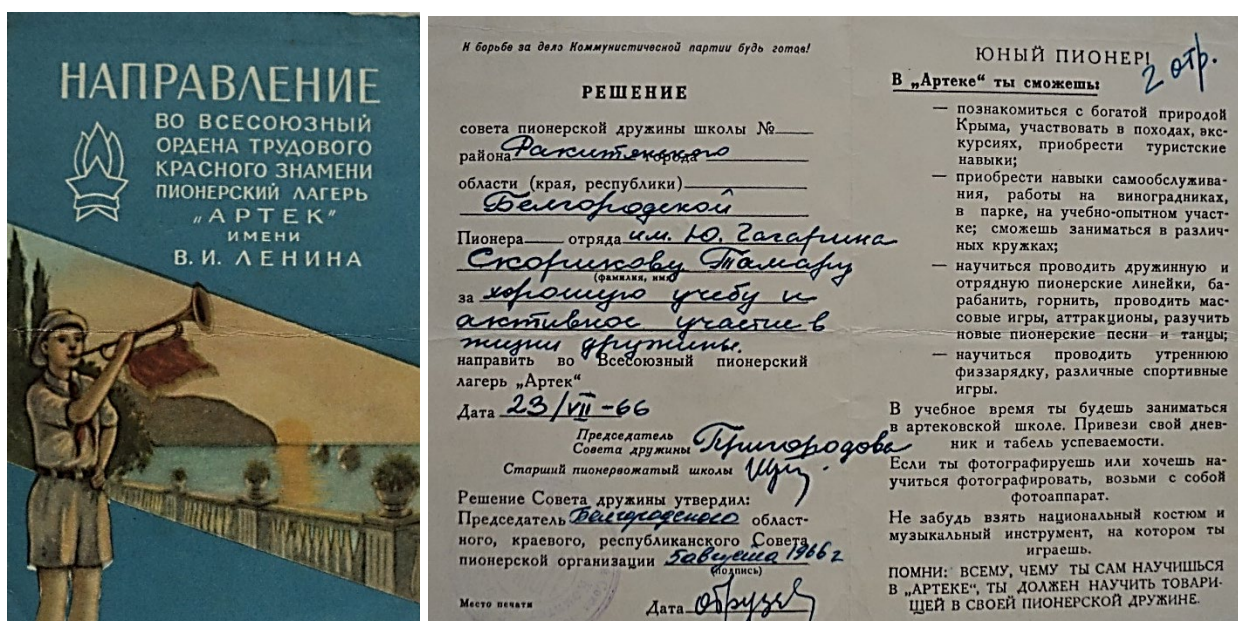 НАПРАВЛЕНИЕ
ВО ВСЕСОЮЗНЫЙ
ОРДЕНА ТРУДОВОГО
КРАСНОГО ЗНАМЕНИ
ПИОНЕРСКИЙ ЛАГЕРЬ
„АРТЕК"
ИМЕНИ
В. И. ЛЕНИНА
К борьбе за дело Коммунистической партии будь готов!
РЕШЕНИЕ
совета пионерской дружины школы №
района Ракитянского города
области (края, республики)
Белгородской
Пионера отряда им. Ю. Гагарина
Скорикову Тамару
(фамилия, имя)
за хорошую учебу и
активное участие в
жизни дружины.
направить во Всесоюзный пионерский
лагерь „Артек"
Дата 23/VII-66
Председатель
Совета дружины Пригородова
Старший пионервожатый школы
Решение Совета дружины утвердил:
Председатель Белгородского област-
ного, краевого, республиканского Совета
пионерской организации 5 августа 1966 г
(подпись)
Место печати Дата
ЮНЫЙ ПИОНЕР!
2 отр.
В „Артеке" ты сможешь:
— познакомиться с богатой природой
Крыма, участвовать в походах, экс-
курсиях, приобрести туристские
навыки;
— приобрести навыки самообслужива-
ния, работы на виноградниках,
в парке, на учебно-опытном участ-
ке; сможешь заниматься в различ-
ных кружках;
— научиться проводить дружинную и
отрядную пионерские линейки, ба-
рабанить, горнить, проводить мас-
совые игры, аттракционы, разучить
новые пионерские песни и танцы;
— научиться проводить утреннюю
физзарядку, различные спортивные
игры.
В учебное время ты будешь заниматься
в артековской школе. Привези свой днев-
ник и табель успеваемости.
Если ты фотографируешь или хочешь на-
учиться фотографировать, возьми с собой
фотоаппарат.
Не забудь взять национальный костюм и
музыкальный инструмент, на котором ты
играешь.
ПОМНИ: ВСЕМУ, ЧЕМУ ТЫ САМ НАУЧИШЬСЯ
В „АРТЕКЕ", ТЫ ДОЛЖЕН НАУЧИТЬ ТОВАРИ-
ЩЕЙ В СВОЕЙ ПИОНЕРСКОЙ ДРУЖИНЕ.